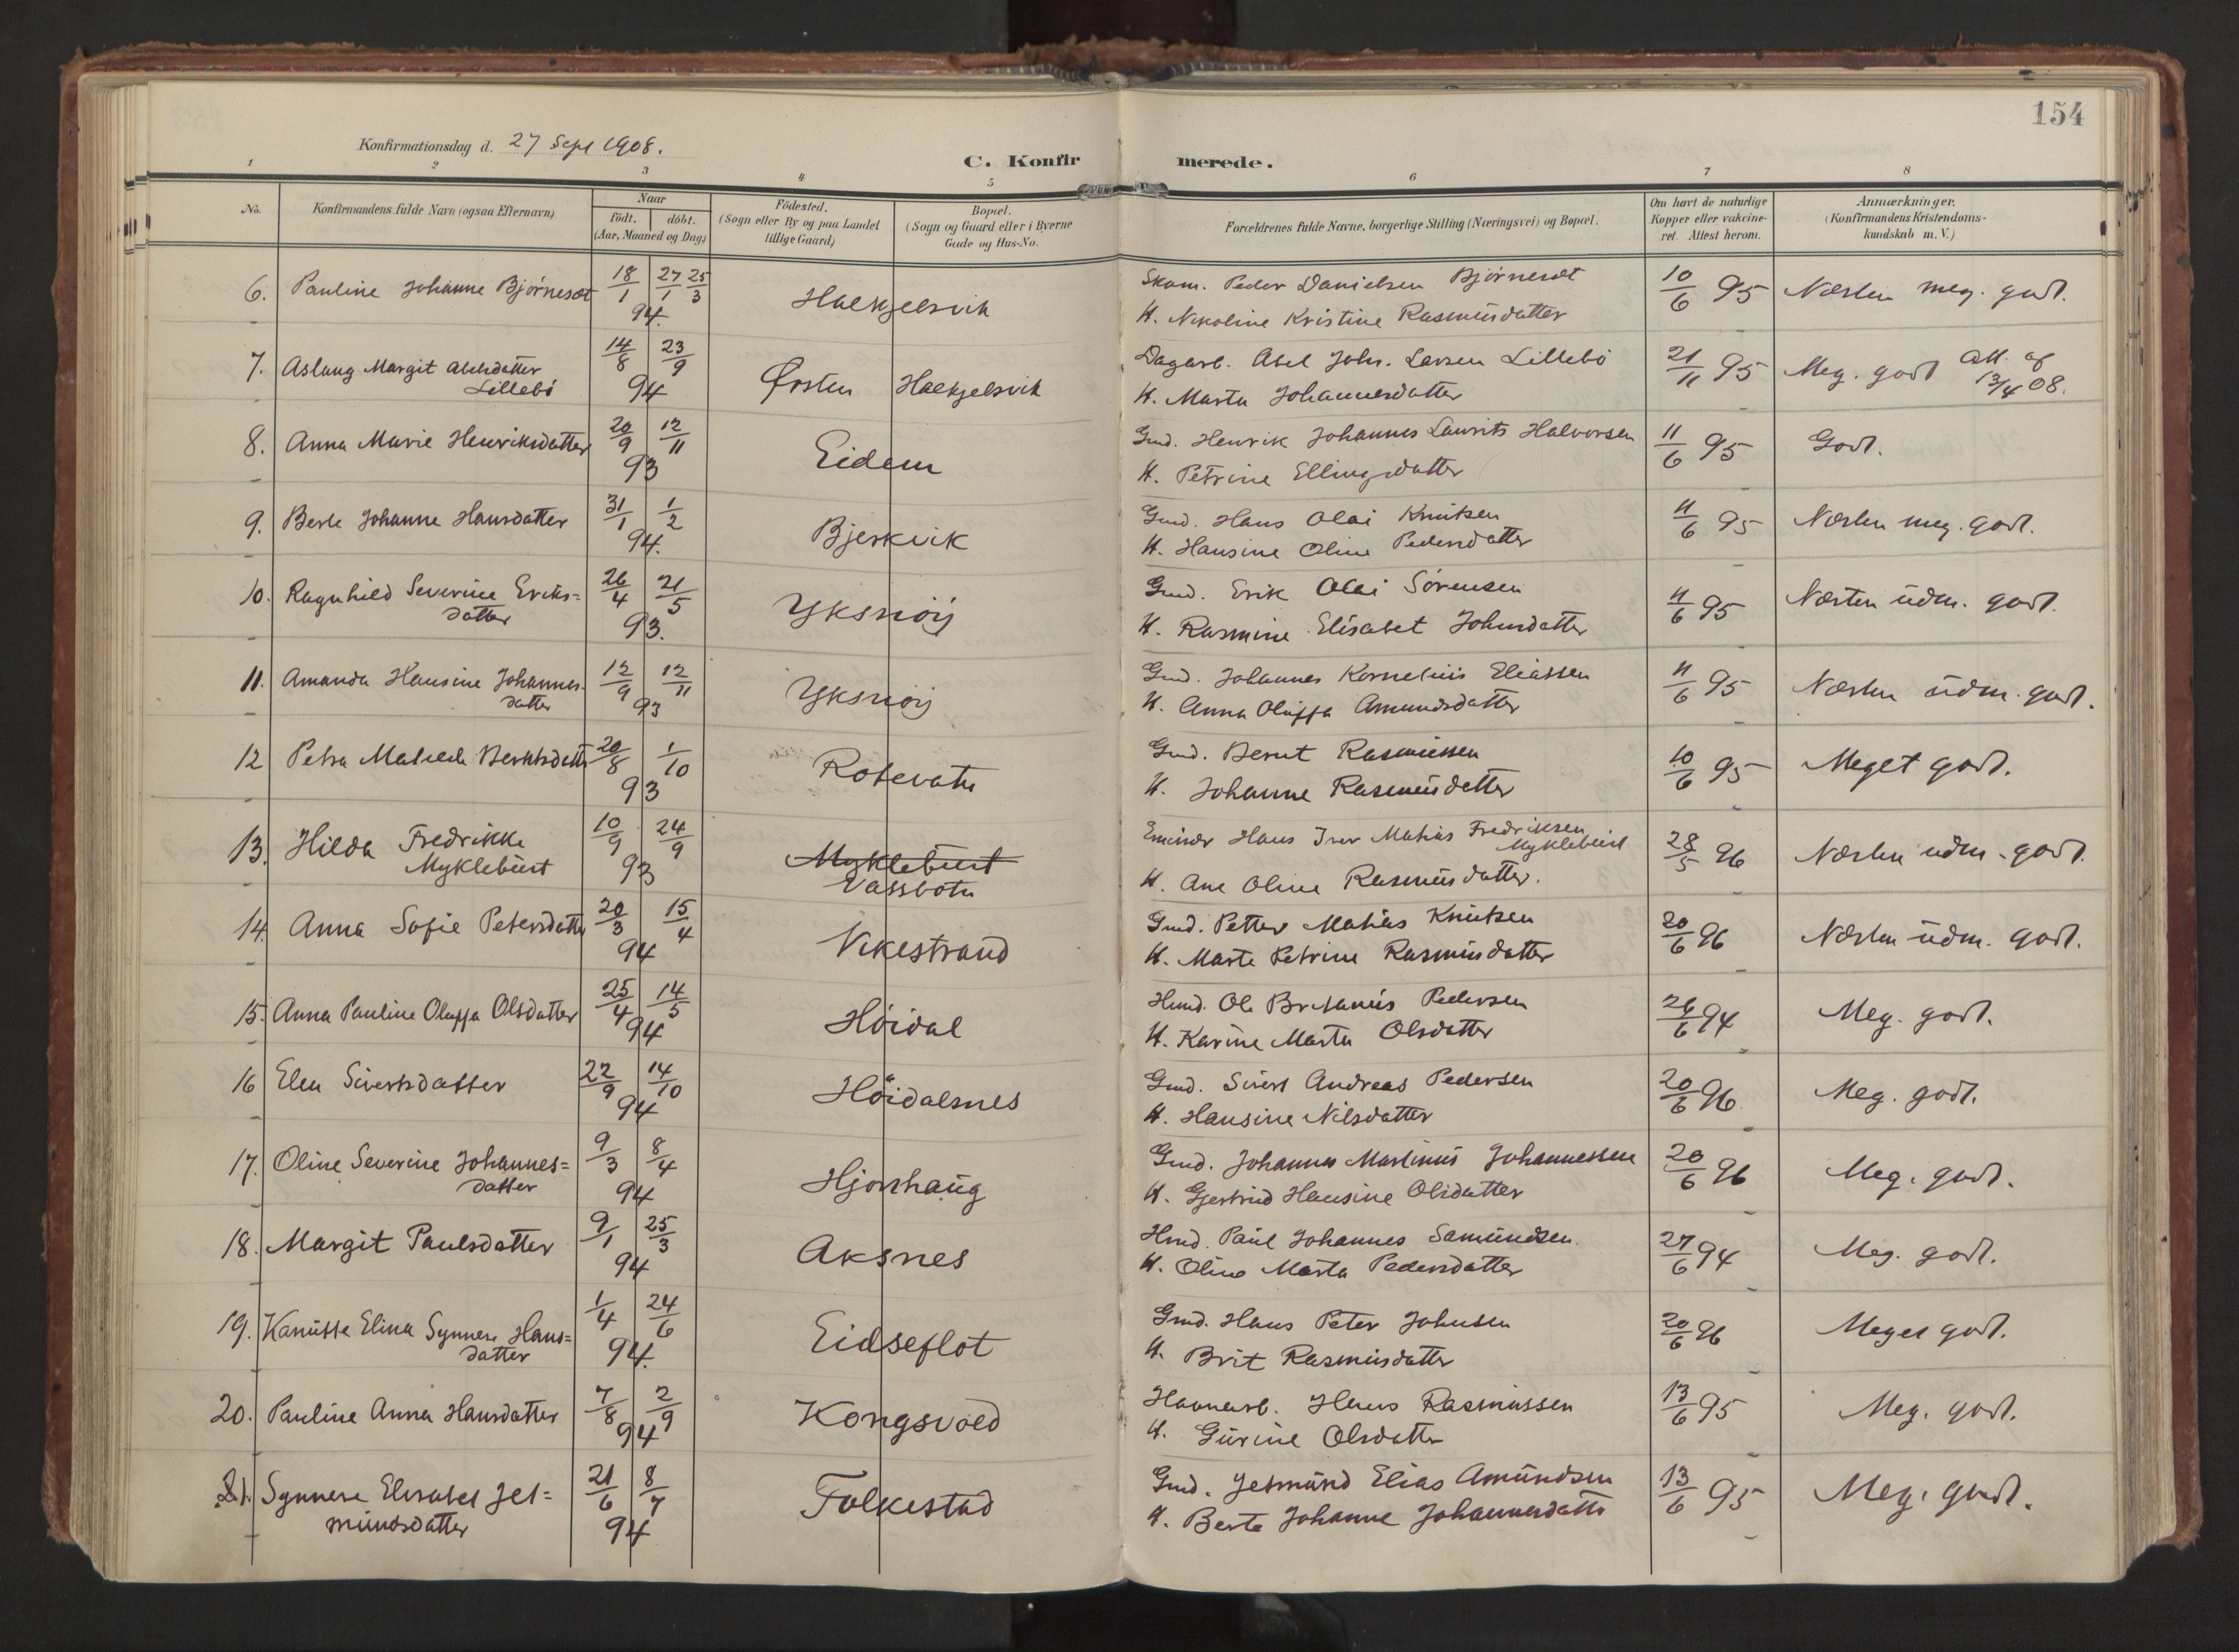 154
Konfirmationsdag d. 27 Sept 1908.
C. Konfirmerede.
1 2 3 4 5 6 7 8
No.
Konfirmandens fulde Navn (ogsaa Efternavn)
Naar
födt. döbt.
(Aar, Maaned og Dag)
Födested.
(Sogn eller By og paa Landet
tillige Gaard)
Bopæl.
(Sogn og Gaard eller i Byerne
Gade og Hus-No.
Forældrenes fulde Navne, borgerlige Stilling (Næringsvei) og Bopæl.
Om havt de naturlige
Kopper eller vakcine-
ret. Attest herom.
Anmærkninger.
(Konfirmandens Kristendoms-
kundskab m. V.)
6. Pauline Johanne Bjørneset 18/1 27/1 25/3 94. Halkjelsvik Skom. Peder Danielsen Bjørneset 10/6 95 Næsten meg. godt.
H. Nikoline Kristine Rasmusdatter
7. Aslaug Margit Abelsdatter 14/8 23/9 94 Ørsten Halkjelsvik Dagarb. Abel Johs. Larsen Lillebö 21/11 95 Meg. godt Att. af 13/4 08.
Lillebö H. Marta Johannesdatter
8. Anna Marie Henriksdatter 20/9 12/11 93 Eidem Gmd. Henrik Johannes Laurits Halvorsen 11/6 95 Godt.
H. Petrine Ellingsdatter
9. Berte Johanne Hansdatter 31/1 1/2 94. Bjerkvik Gmd. Hans Olai Knutsen 11/6 95 Næsten meg. godt.
H. Hansine Oline Pedersdatter
10. Ragnhild Severine Eriks= 26/4 21/5 93. Yksnöij Gmd. Erik Olai Sörensen 11/6 95 Næsten üdm. godt.
datter H. Rasmine Elisabet Johnsdatter
11. Amanda Hansine Johannes- 12/9 12/11 93 Yksnöij Gmd. Johannes Kornelius Eliassen 11/6 95 Næsten üdm. godt.
datter H. Anna Oluffa Amundsdatter
12 Petra Berntsdatter 20/8 1/10 93 Rotevatn Gmd. Bernt Rasmussen 10/6 95 Meget godt.
H. Johanne Rasmusdatter
13. Hilda Fredrikke 10/9 24/9 93 Myklebust Hans Iver Matias Fredriksen 28/5 96 Næsten udm. godt.
Myklebüst Vassbotn Myklebüst
H. Ane Oline Rasmusdatter.
14. Anna Sofie Petersdatter 20/3 15/4 94 Vikestrand Gmd. Petter Matias Knutsen 20/6 96 Næsten üdm. godt.
H. Marte Petrine Rasmusdatter
15. Anna Pauline Oluffa Olsdatter 25/4 14/5 94 Höidal Hmd. Ole Pedersen 26/6 94 Meg. godt.
H. Karine Marta Olsdatter
16 Elen Sivertsdatter 22/9 14/10 94 Höidalsnes Gmd. Sivert Andreas Pedersen 20/6 96 Meg. godt.
H. Hansine Nilsdatter
17. Oline Severine Johannes= 9/3 8/4 94 Hjorthaüg Gmd. Johannes Martinus Johannessen 20/6 96 Meg. godt.
datter H. Gjertrud Hansine Olsdatter
18. Margit Paulsdatter 9/1 25/3 94 Aksnes Hmd. Paul Johannes Samundsen 27/6 94 Meg. godt.
H. Oline Marta Pedersdatter
19. Kanutte Elina Synneve Hans= 1/4 24/6 94. Eidseflot Gmd. Hans Peter Johnsen 20/6 96 Meget godt.
datter H. Brit Rasmusdatter
20. Pauline Anna Hansdatter 7/8 2/9 94 Kongsvold Havnearb. Hans Rasmussen 13/6 95 Meg. godt.
H. Gurine Olsdatter
21. Synneve Elisabet Jet= 21/6 8/7 94 Folkestad Gmd. Jetmund Elias Amündsen 13/6 95 Meg. godt.
mundsdatter H. Berte Johanne Johannesdatter